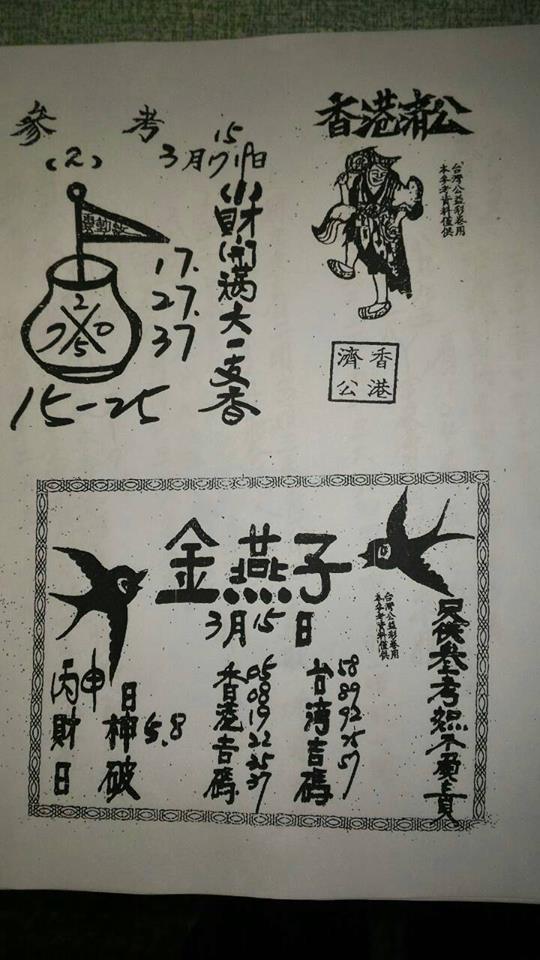 香港濟公
本參考資料僅供
台灣公益彩卷用
香港
濟公
參考
(2)
3月15日
17.19
(1)
財開滿大一支香
17.
27.
37
2
5
0
15-25
金燕子
3月15日
本參考資料僅供
台灣公益彩卷用
只供參考恕不負責
台湾吉碼
58
89
92
75
57
香港吉碼
05
08
19
22
25
37
丙申日
財神 5.8
日破